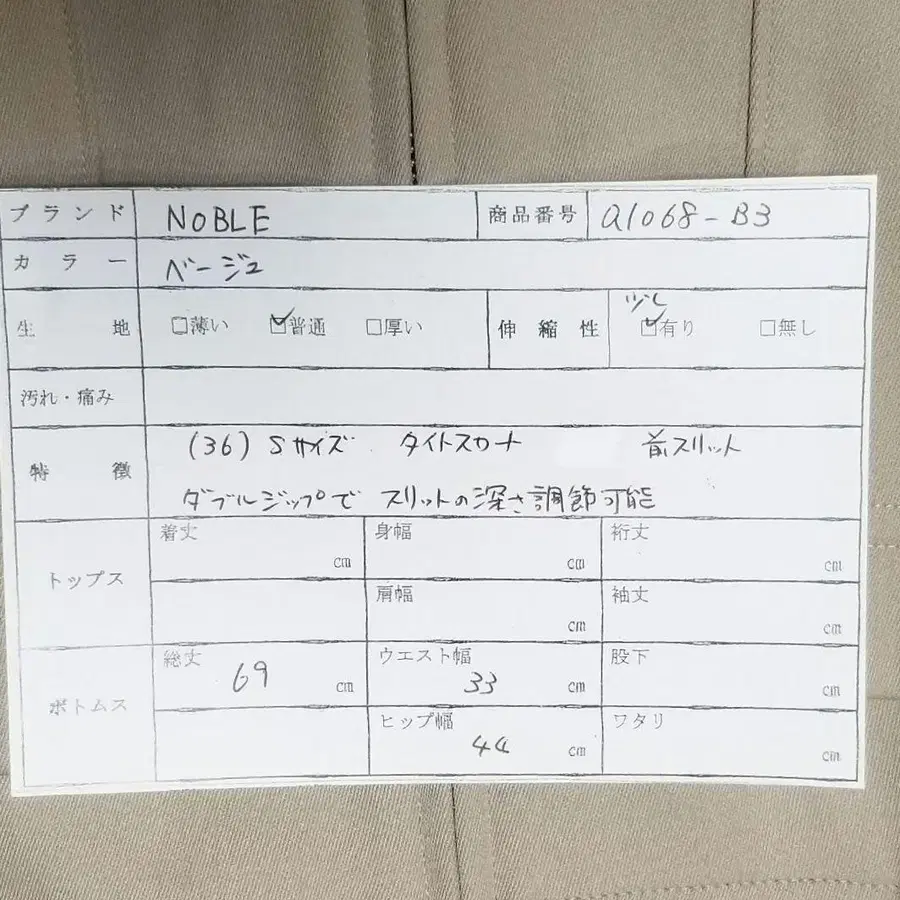 ブランド NOBLE 商品番号 a1068-B3
カラー ベージュ
少し
生地 □薄い ☑普通 □厚い 伸縮性 ☑有り □無し
汚れ・痛み
(36) Sサイズ タイトスカート 前スリット
特徴
ダブルジップで スリットの深さ調節可能
トップス
着丈 cm 身幅 cm 裄丈 cm
肩幅 cm 袖丈 cm
ボトムス
総丈 69 cm ウエスト幅 33 cm 股下 cm
ヒップ幅 44 cm ワタリ cm